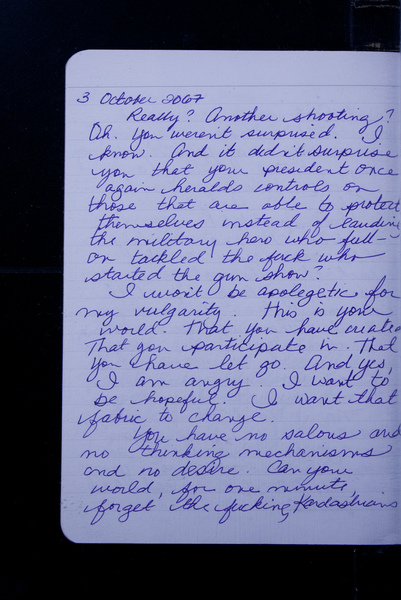 3 October 2067
Really? Another shooting?
Oh. You weren't surprised. I
know. And it didn't surprise
you that your president once
again heralds controls on
those that are able to protect
themselves instead of lauding
the military hero who full-
on tackled the fuck who
started the gun show?
I won't be apologetic for
my vulgarity. This is your
world. That you have created
That you participate in. That
you have let go. And yes,
I am angry. I want to
be hopeful. I want that
fabric to change.
You have no salons and
no thinking mechanisms
and no desire. Can your
world, for one minute,
forget the fucking Kardashians